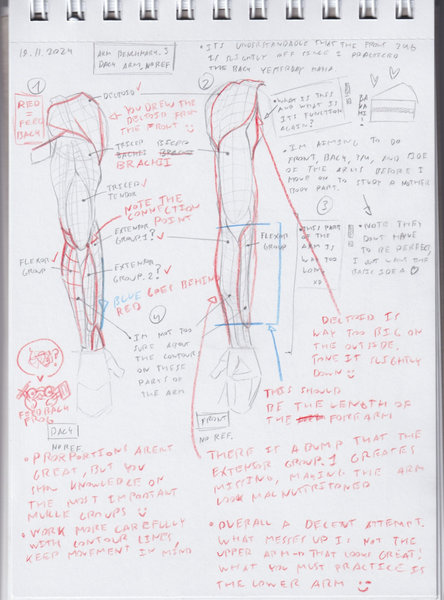 19.11.2024
ARM BENCHMARK. 3
BACK ARM, NO REF.
• IT'S UNDERSTANDABLE THAT THE FRONT
IS SLIGHTLY OFF SINCE I PRACTICED
THE BACK YESTERDAY HAHA
1
RED
= FEED
BACK
DELTOID
YOU DREW THE
DELTOID FROM
THE FRONT
2
WHAT IS THIS
AND WHAT
IS ITS
FUNCTION
AGAIN?
TRICEP
BICEP
BRACHII
• I'M AIMING TO DO
FRONT, BACK, 3/4, AND SIDE
OF THE ARMS BEFORE I
MOVE ON TO STUDY ANOTHER
BODY PART.
TRICEP
TENDON
NOTE THE
CONNECTION
POINT
3
• NOTE THEY
DON'T HAVE
TO BE PERFECT,
I JUST WANT THE
BASIC IDEA
EXTENSOR
GROUP.1?
FLEXOR
GROUP
THIS PART
OF THE
ARM IS
WAY TOO
LONG
XD
FLEXOR
GROUP
EXTENSOR
GROUP.2?
BLUE GOES BEHIND
RED
4
I'M NOT TOO
SURE ABOUT
THE CONTOURS
ON THESE
PARTS OF
THE ARM
DELTOID IS
WAY TOO BIG ON
THE OUTSIDE,
TONE IT SLIGHTLY
DOWN
FEEDBACK
FROG
THIS SHOULD
BE THE LENGTH OF
THE FOREARM
BACK
NO REF.
FRONT
NO REF.
• PROPORTIONS ARENT
GREAT, BUT YOU
SHOW KNOWLEDGE ON
THE MOST IMPORTANT
MUSCLE GROUPS
• WORK MORE CAREFULLY
WITH CONTOUR LINES,
KEEP MOVEMENT IN MIND
THERE IS A BUMP THAT THE
EXTENSOR GROUP.1 CREATES
MISSING, MAKING THE ARM
LOOK MALNUTRITIONED
• OVERALL A DECENT ATTEMPT.
WHAT MESSES UP IS NOT THE
UPPER ARM → THAT LOOKS GREAT!
WHAT YOU MUST PRACTICE IS
THE LOWER ARM